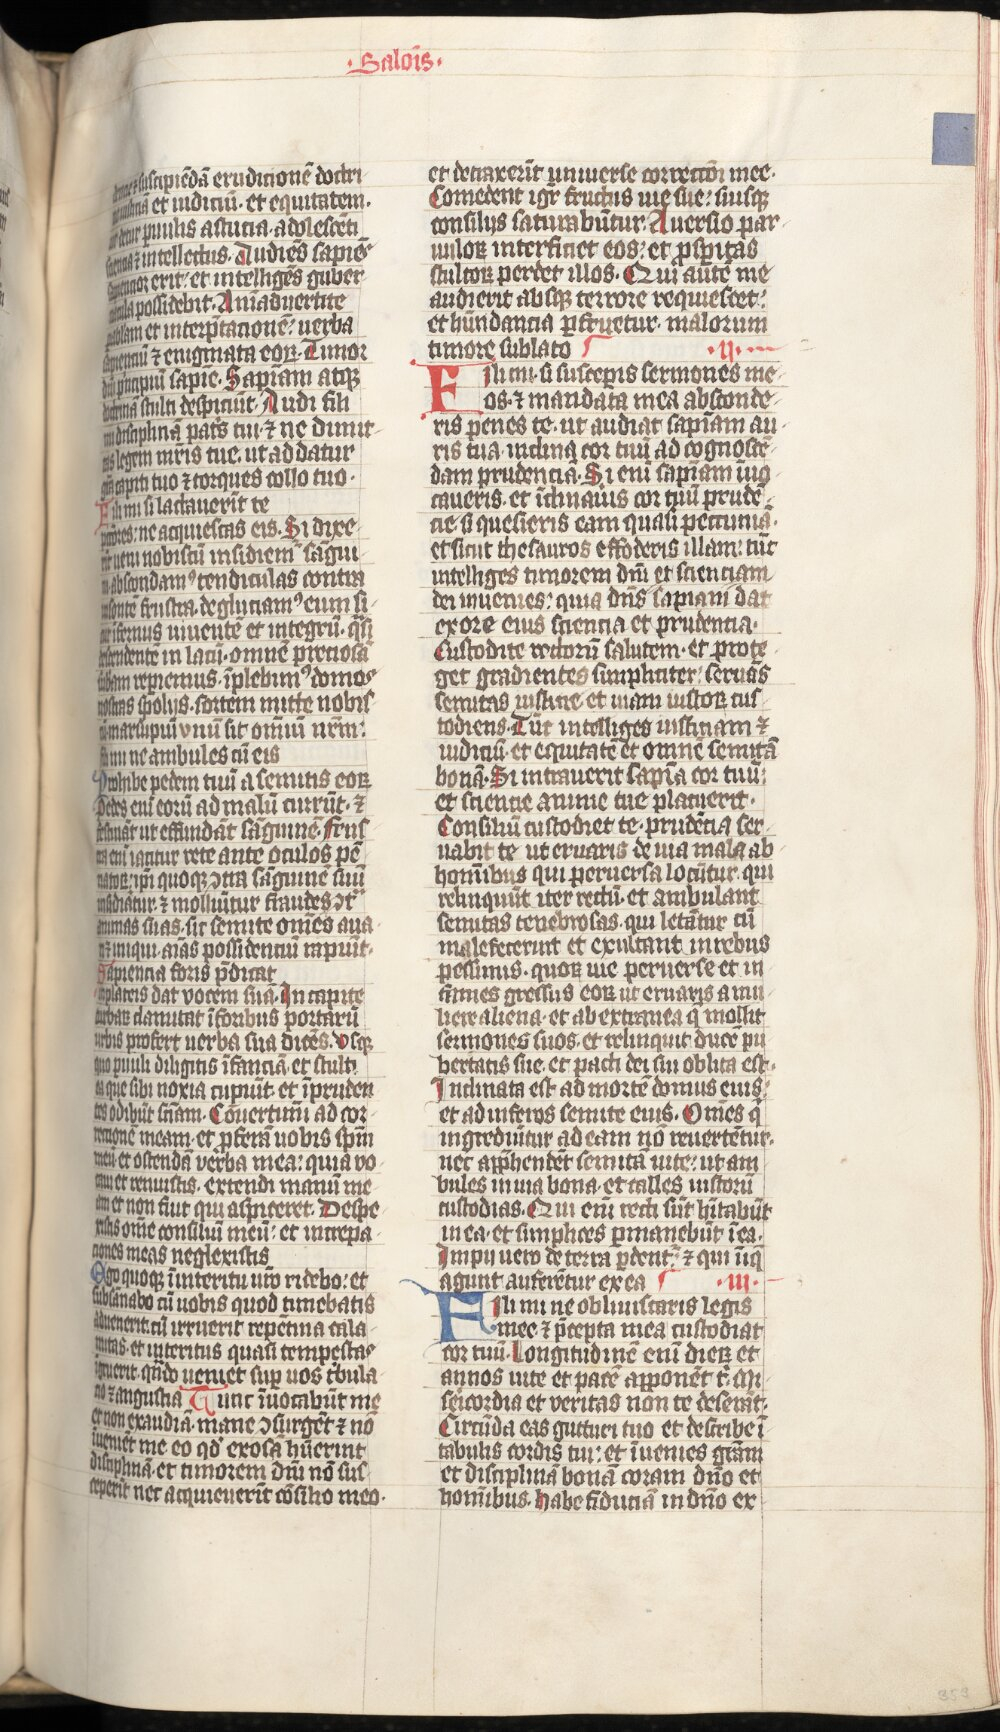 ·Saloīs·
suscipiēdā eruditionē doctri
et iudiciū· et equitatem·
detur puulis astutia· adolescēti
et intellectus· Audiēs sapiēs
sapientior erit· et intelligēs guber
nacula possidebit· Aniaduertite
pablam et interp̄tationē: uerba
sapientiū ⁊ enigmata eoꝝ· Timor
dn̄i p̄ncipiū sapīe· Sapīam atqꝫ
doctrinā stulti despiciūt· Audi fili
mi disciplinā patͥs tui· ⁊ ne dimit
tas legem mr̄is tue· ut addatur
grā capiti tuo ⁊ torques collo tuo·
Fili mi si lactauerīt te
p̄ctores: ne acquiescas eis· Si dixe
rīt ueni nobiscū insidiemꝰ sāgui
ni· abscondamꝰ tendiculas contra
insontē frustra· deglutiamꝰ eum si
cut īfernus uiuentē et integrū· q̄si
descendentē in lacū· omnē preciosā
subam repiemus· īplebimꝰ domos
nostras spolijs· sortem mitte nobisͨ
cū marsupiū vnū sit om̄iū nr̄m:
fili mi ne ambules cū eis
Prohibe pedem tuū a semitis eoꝝ
Pedes eni eorū ad malū currūt· ⁊
festināt ut effundāt sāguinē· Frus
tra eni iacitur rete ante oculos pē
natoꝝ: ip̄i quoqꝫ ꝯtra sāguinē suū
insidiātur· ⁊ moliūtur fraudes ꝯᷓ
animas suas· sic semite om̄es aua
ri ⁊ iniqui· aīas possidentiū rapiūt·
Sapiencia foris p̄dicat
in plateis dat vocem suā· In capite
turbaꝝ clamitat ī foribus portarū
urbis profert uerba sua dicēs· Usqꝫ
quo puuli diligitis īfanciā· et stulti
ea que sibi noxia cupiūt· et īpruden
tes odibūt sciam· Cōuertimi ad cor
rectionē meam· et pferā uobis sp̄m
meū· et ostendā verba mea: quia vo
caui et renuistis· extendi manū me
am et non fuit qui aspiceret· Despe
xistis om̄e consiliū meū: et increpa
ciones meas neglexistis
Ego quoqꝫ ī interitu uro ridebo: et
subsānabo cū uobis quod timebatis
aduenerit· cū irruerit repetina cala
mitas· et interitus quasi tempestas
īgruerit· qn̄do ueniet sup uos tͥbula
tio ⁊ angustia Tunc īuocabūt me
et non exaudiā· mane ꝯsurgēt ⁊ nō
īueniēt me eo qd' exosā hūerint
disciplinā· et timorem dn̄i nō sus
ceperīt nec acquieuerīt cōsilio meo·
et detraxerīt uniuerse correctōi mee·
Comedent igr̄ fructus uie sue: suisqꝫ
consilijs saturabūtur· Auersio par
uuloꝝ interficiet eos: et pspitas
stultoꝝ perdet illos· Qui autē me
audierit absqꝫ terrore requiescet:
et hūndantia pfruetur· malorum
timore sublato ·II·
Fili mi· si susceperis sermones me
os· ⁊ mandata mea absconde
ris penes te· ut audiat sapīam au
ris tua· inclina cor tuū ad cognoscē
dam prudenciā· Si eni sapīam īuo
caueris· et īclinauis cor tuū prudē
cie· si quesieris eam quasi peccuniā·
et sicut thesauros effoderis illam: tūc
intelliges timorem dn̄i et scienciam
dei inuenies: quia dn̄s sapiam dat
ex ore eius sciencia et prudencia·
Custodite rectorū salutem· et prote
get gradientes simpliciter: seruās
semitas iusticie· et uiam iustoꝝ cus
todiens· Tūc intelliges iusticiam ⁊
iudiciū· et equitatē et omnē semitā
bonā· Si intrauerit sapīa cor tuū:
et sciencie anime tue placuerit·
Consiliū custodiet te· prudēcia ser
uabit te ut eruaris de uia mala ab
hom̄ibus qui peruersa locūtur· qui
relinquūt iter rectū· et ambulant
semitas tenebrosas· qui letātur cū
malefecerint et exultant in rebus
pessimis· quoꝝ uie peruerse et in
fames gressus eoꝝ ut eruaris a mu
liere aliena· et ab extranea q̄ mollit
sermones suos· et relinquit ducē pu
bertatis sue· et pacti dei sui oblita est·
Inclinata est ad mortē domus eius:
et ad inferos semite eius· Om̄es q̄
ingrediūtur ad eam nō reuertētur·
nec app̄hendēt semitā uite: ut am
bules in uia bona· et calles iustorū
custodias· Qui eni recti sūt hītabūt
in ea· et simplices pmanebūt ī ea·
Impij uero de terra pdentᷣ· ⁊ qui īiq̄
agunt auferētur ex ea ·III·
Fili mi ne obliuiscaris legis
mee· ⁊ p̄cepta mea custodiat
cor tuū· Longitudinē eni dieꝝ et
annos uite et pacē apponēt t̄· Mi
sēicordia et veritas non te deserāt·
Circūda eas gutturi tuo et describe ī
tabulis cordis tui: et īuenies grām
et disciplinā bonā coram dn̄o et
hom̄ibus· habe fiduciā in dn̄o ex
353